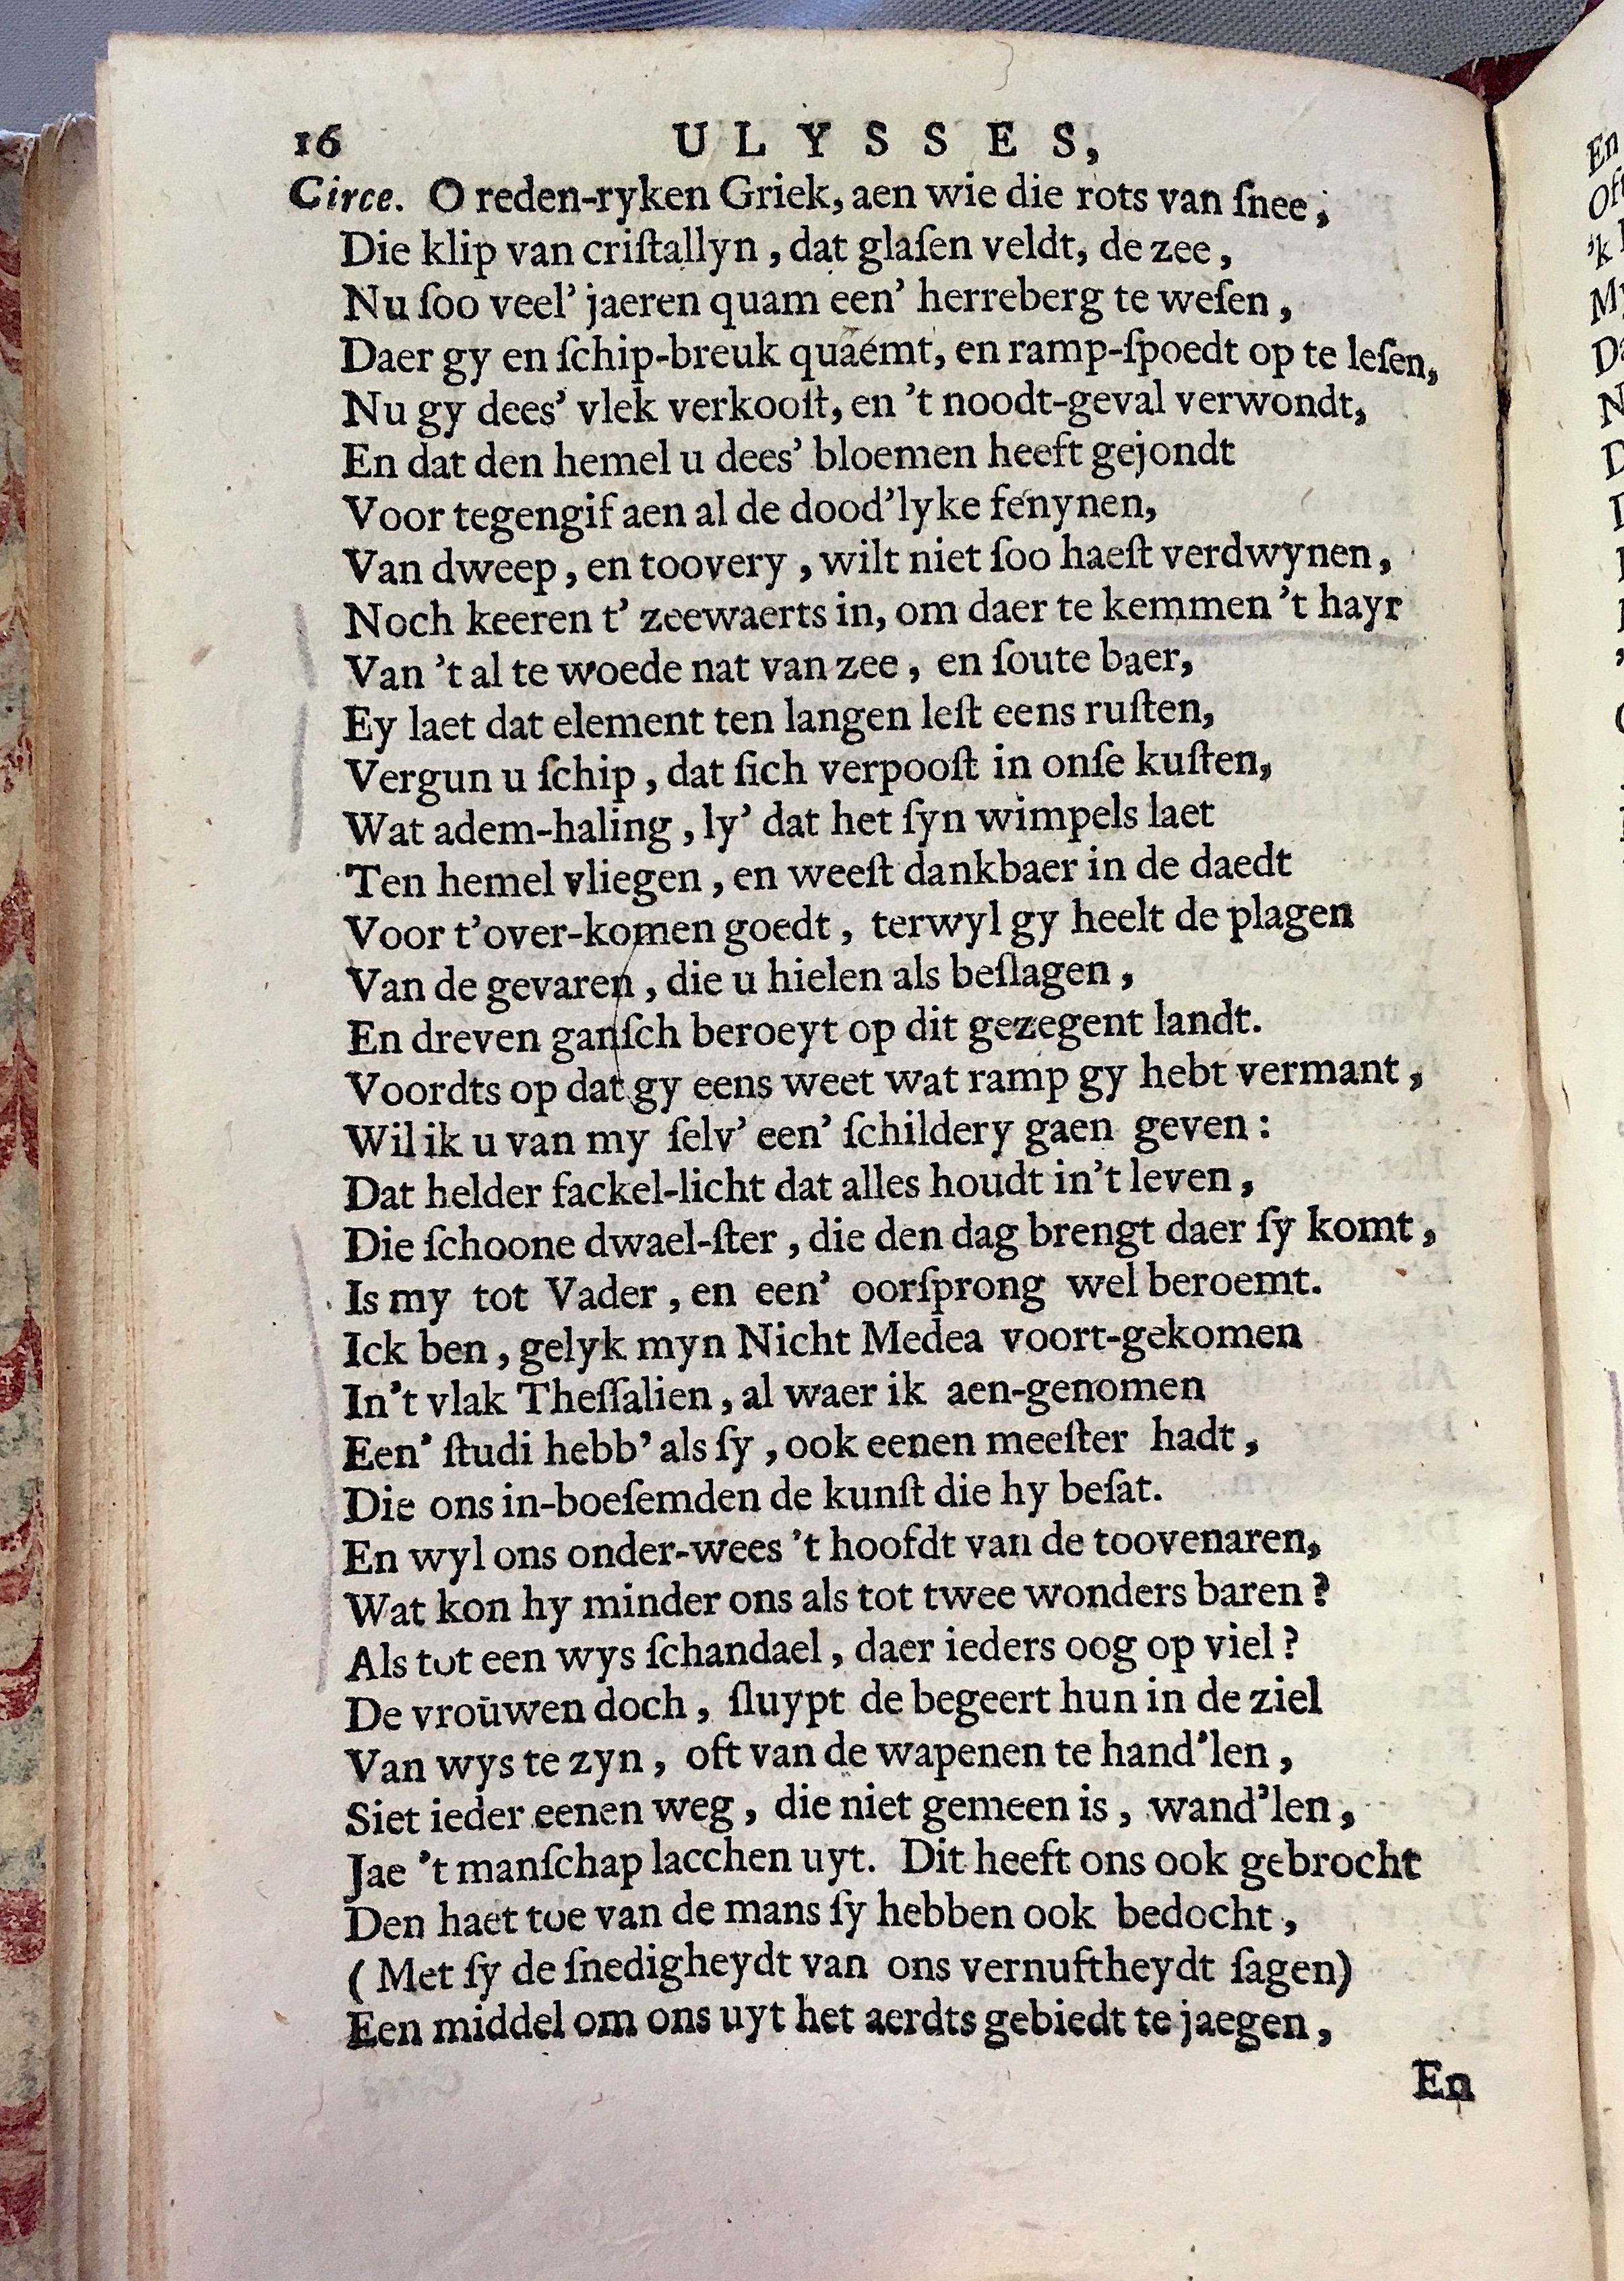 16 ULYSSES,
Circe. O reden-ryken Griek, aen wie die rots van ſnee,
Die klip van criſtallyn, dat glaſen veldt, de zee,
Nu ſoo veel’ jaeren quam een’ herreberg te weſen,
Daer gy en ſchip-breuk quaemt, en ramp-ſpoedt op te leſen,
Nu gy dees’ vlek verkooſt, en ’t noodt-geval verwondt,
En dat den hemel u dees’ bloemen heeft gejondt
Voor tegengif aen al de dood’lyke fenynen,
Van dweep, en toovery, wilt niet ſoo haeſt verdwynen,
Noch keeren t’ zeewaerts in, om daer te kemmen ’t hayr
Van ’t al te woede nat van zee, en ſoute baer,
Ey laet dat element ten langen leſt eens ruſten,
Vergun u ſchip, dat ſich verpooſt in onſe kuſten,
Wat adem-haling, ly’ dat het ſyn wimpels laet
Ten hemel vliegen, en weeſt dankbaer in de daedt
Voor t’over-komen goedt, terwyl gy heelt de plagen
Van de gevaren, die u hielen als beſlagen,
En dreven ganſch beroeyt op dit gezegent landt.
Voordts op dat gy eens weet wat ramp gy hebt vermant,
Wil ik u van my ſelv’ een’ ſchildery gaen geven:
Dat helder fackel-licht dat alles houdt in’t leven,
Die ſchoone dwael-ſter, die den dag brengt daer ſy komt,
Is my tot Vader, en een’ oorſprong wel beroemt.
Ick ben, gelyk myn Nicht Medea voort-gekomen
In’t vlak Theſſalien, al waer ik aen-genomen
Een’ ſtudi hebb’ als ſy, ook eenen meeſter hadt,
Die ons in-boeſemden de kunſt die hy beſat.
En wyl ons onder-wees ’t hoofdt van de toovenaren,
Wat kon hy minder ons als tot twee wonders baren?
Als tot een wys ſchandael, daer ieders oog op viel?
De vrouwen doch, ſluypt de begeert hun in de ziel
Van wys te zyn, oft van de wapenen te hand’len,
Siet ieder eenen weg, die niet gemeen is, wand’len,
Jae ’t manſchap lacchen uyt. Dit heeft ons ook gebrocht
Den haet toe van de mans ſy hebben ook bedocht,
(Met ſy de ſnedigheydt van ons vernuftheydt ſagen)
Een middel om ons uyt het aerdts gebiedt te jaegen,
En